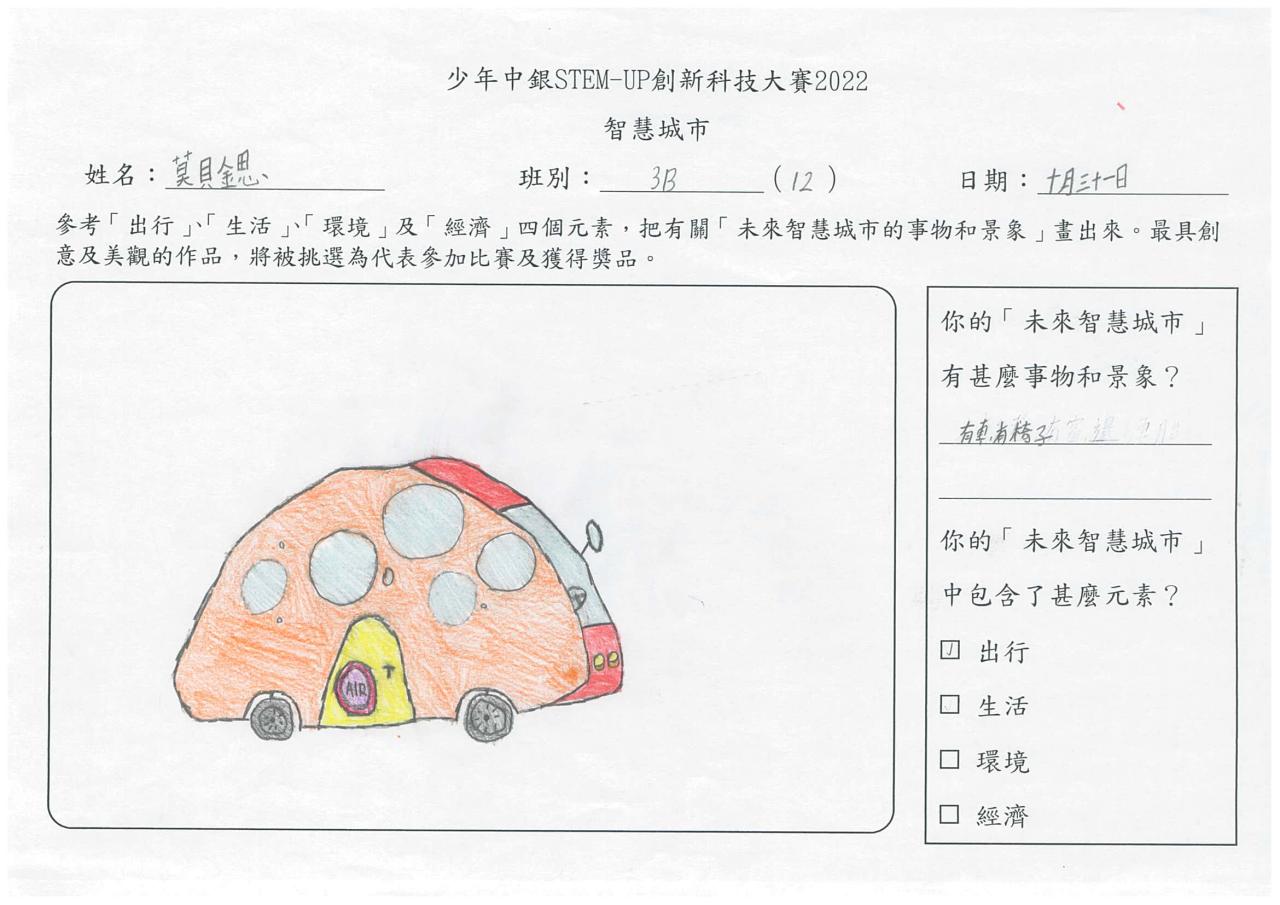 少年中銀STEM-UP創新科技大賽2022
智慧城市
姓名：莫貝鍶 班別：3B（12） 日期：十月三十一日
參考「出行」、「生活」、「環境」及「經濟」四個元素，把有關「未來智慧城市的事物和景象」畫出來。最具創
意及美觀的作品，將被挑選為代表參加比賽及獲得獎品。
你的「未來智慧城市」
有甚麼事物和景象？
有車,有椅子
你的「未來智慧城市」
中包含了甚麼元素？
出行
生活
環境
經濟
AIR